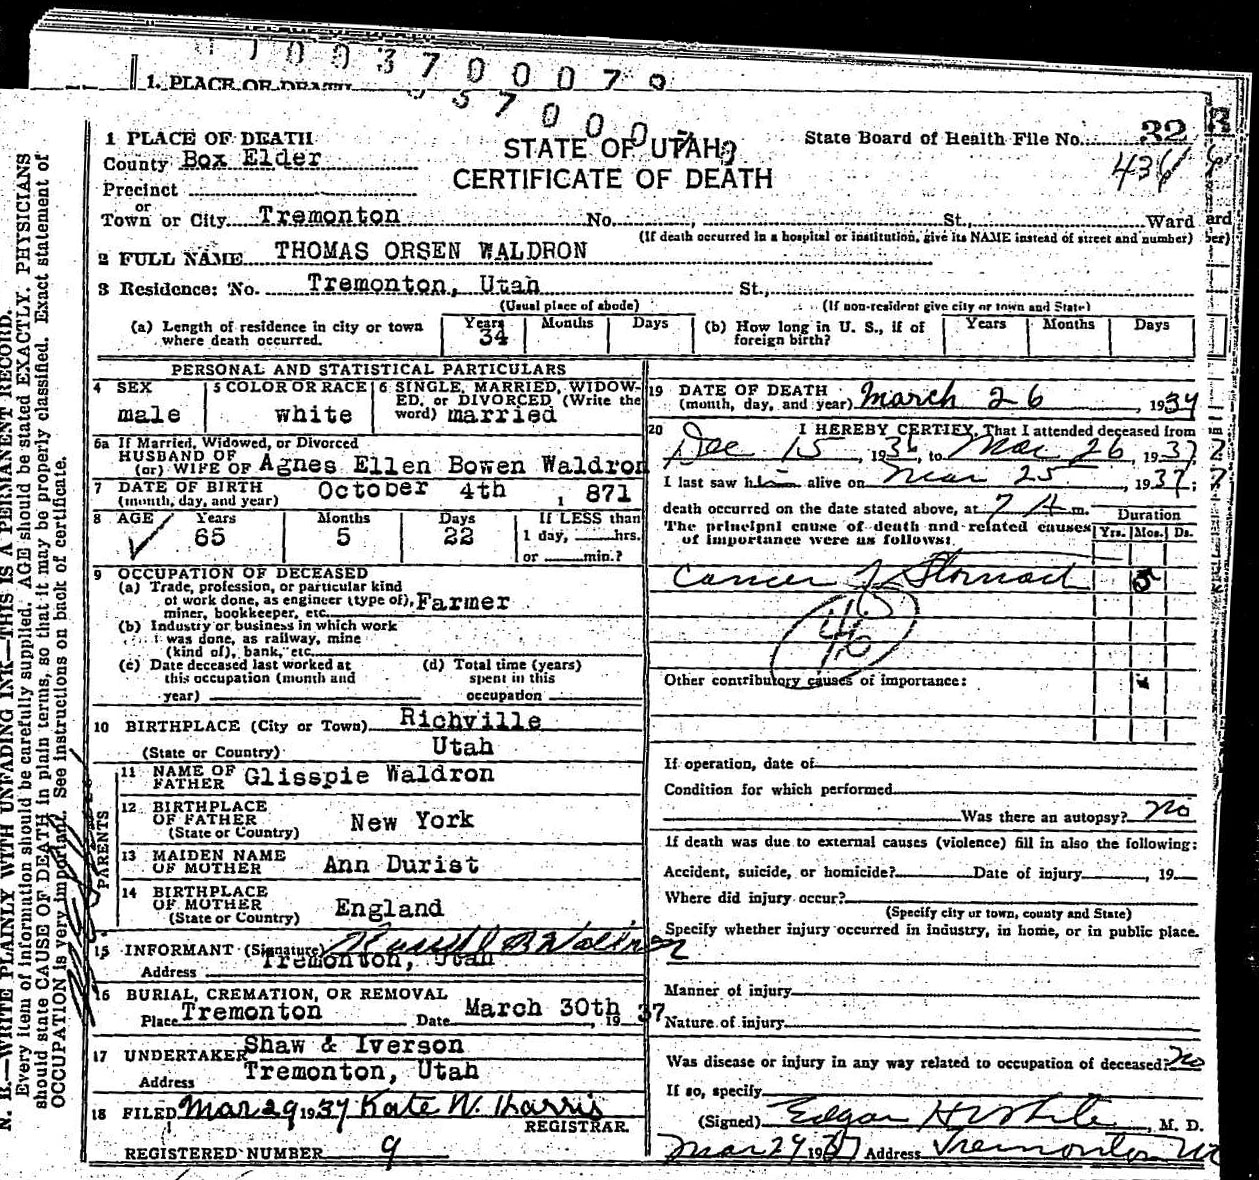 1 0 0 3 7 0 0 0 7 9
1. PLACE OF DEATH
3 7 0 0 0 7 9
1 PLACE OF DEATH
STATE OF UTAH
State Board of Health File No. 32
436
County Box Elder
CERTIFICATE OF DEATH
Precinct
or
Town or City Tremonton No. , St., Ward
(If death occurred in a hospital or institution, give its NAME instead of street and number)
2 FULL NAME THOMAS ORSEN WALDRON
3 Residence: No. Tremonton, Utah St.,
(Usual place of abode) (If non-resident give city or town and State)
(a) Length of residence in city or town where death occurred. Years 34 Months Days (b) How long in U. S., if of foreign birth? Years Months Days
PERSONAL AND STATISTICAL PARTICULARS
4 SEX 5 COLOR OR RACE 6 SINGLE, MARRIED, WIDOW-
ED, or DIVORCED (Write the
male white word) married
6a If Married, Widowed, or Divorced
HUSBAND OF
(or) WIFE OF Agnes Ellen Bowen Waldron
7 DATE OF BIRTH October 4th 1 871
(month, day, and year)
8 AGE Years Months Days If LESS than
65 5 22 1 day, hrs.
or min.?
9 OCCUPATION OF DECEASED
(a) Trade, profession, or particular kind
of work done, as engineer (type of), Farmer
miner, bookkeeper, etc.
(b) Industry or business in which work
was done, as railway, mine
(kind of), bank, etc.
(c) Date deceased last worked at (d) Total time (years)
this occupation (month and spent in this
year) occupation
10 BIRTHPLACE (City or Town) Richville
(State or Country) Utah
PARENTS
11 NAME OF
FATHER Glisspie Waldron
12 BIRTHPLACE
OF FATHER New York
(State or Country)
13 MAIDEN NAME
OF MOTHER Ann Durist
14 BIRTHPLACE
OF MOTHER England
(State or Country)
15 INFORMANT (Signature) Russell B Waldron
Address Tremonton, Utah
16 BURIAL, CREMATION, OR REMOVAL
Place Tremonton Date March 30th, 19 37
17 UNDERTAKER Shaw & Iverson
Address Tremonton, Utah
18 FILED Mar 29 1937 Kate W. Harris
REGISTRAR.
REGISTERED NUMBER 9
19 DATE OF DEATH
(month, day, and year) March 26, 1937
20 I HEREBY CERTIFY, That I attended deceased from
Dec 15, 1936, to Mar 26, 1937
I last saw him alive on Mar 25, 1937;
death occurred on the date stated above, at 7 A m.
Duration
The principal cause of death and related causes
of importance were as follows: Yrs. Mos. Ds.
Cancer of Stomach 5
46
Other contributory causes of importance:
If operation, date of
Condition for which performed
Was there an autopsy? no
If death was due to external causes (violence) fill in also the following:
Accident, suicide, or homicide? Date of injury , 19
Where did injury occur?
(Specify city or town, county and State)
Specify whether injury occurred in industry, in home, or in public place.
Manner of injury
Nature of injury
Was disease or injury in any way related to occupation of deceased? no
If so, specify
(Signed) Edgar H White, M. D.
Mar 29 1937 Address Tremonton Ut
N. B.—WRITE PLAINLY WITH UNFADING INK—THIS IS A PERMANENT RECORD.
Every item of information should be carefully supplied. AGE should be stated EXACTLY. PHYSICIANS
should state CAUSE OF DEATH in plain terms, so that it may be properly classified. Exact statement of
OCCUPATION is very important. See instructions on back of certificate.